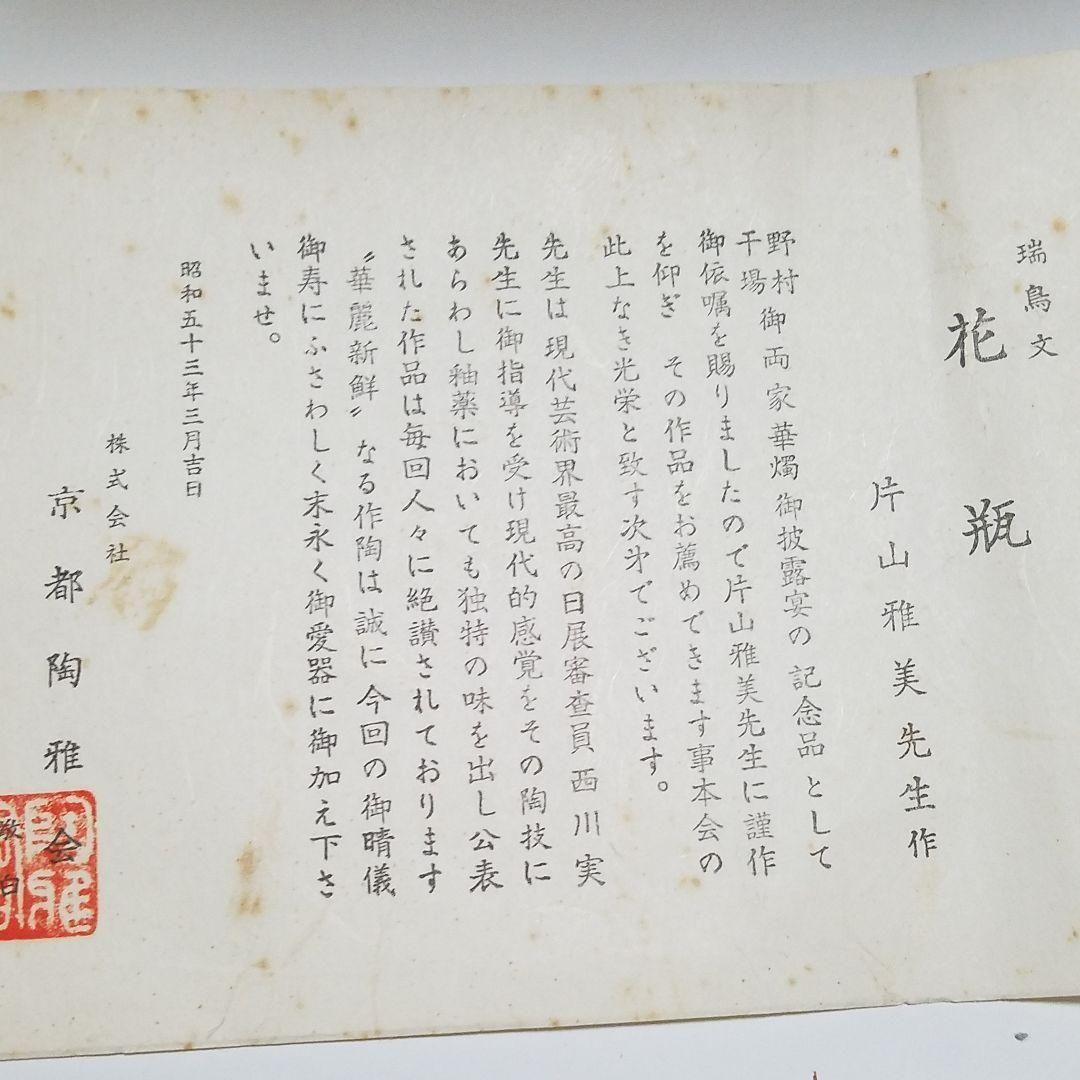 瑞鳥文
花瓶
片山雅美先生作
野村
干場
御両家華燭御披露宴の記念品として
御依嘱を賜りましたので片山雅美先生に謹作
を仰ぎ その作品をお薦めできます事本会の
此上なき光栄と致す次第でございます。
先生は現代芸術界最高の日展審査員西川実
先生に御指導を受け現代的感覚をその陶技に
あらわし釉薬においても独特の味を出し公表
された作品は毎回人々に絶讃されております
〝華麗新鮮〟なる作陶は誠に今回の御晴儀
御寿にふさわしく末永く御愛器に御加え下さ
いませ。
昭和五十三年三月吉日
株式会社
京都陶雅会
敬白